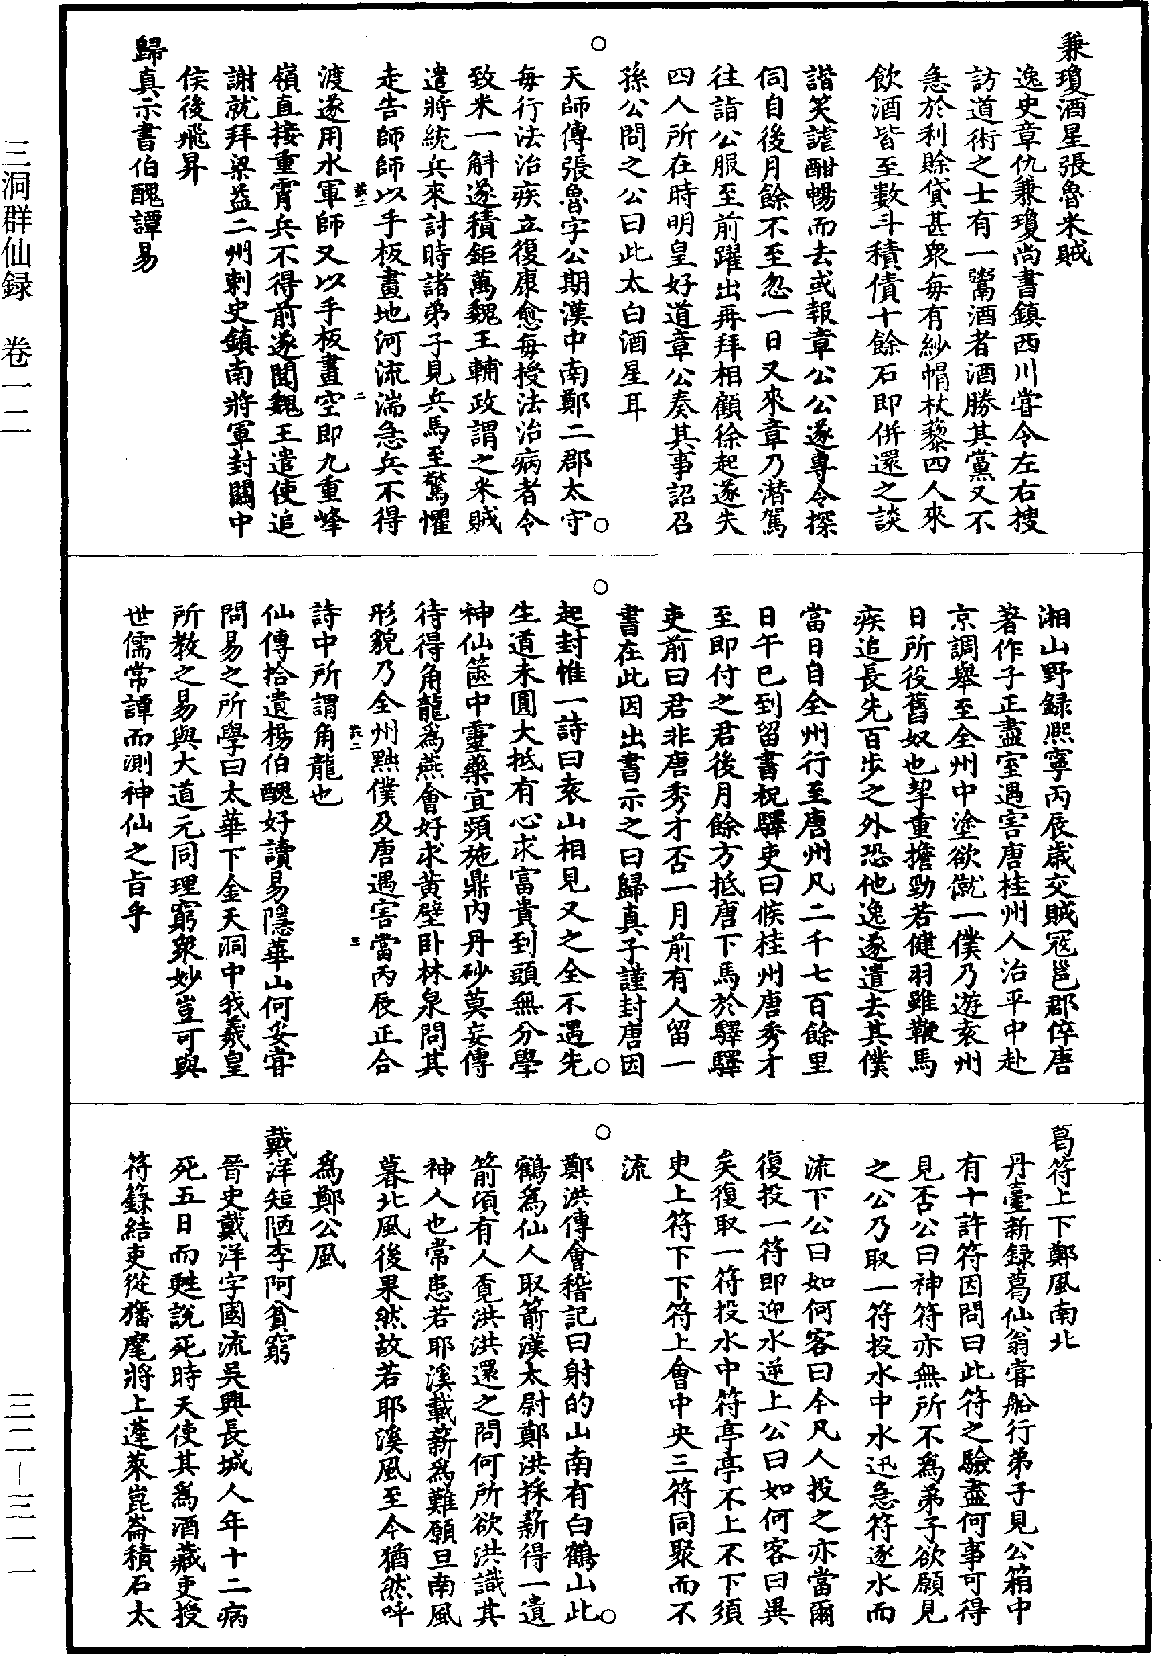 三洞群仙録　卷一二
三二—三一一
兼瓊酒星張魯米賊
逸史章仇兼瓊尚書鎮西川嘗令左右搜
訪道術之士有一鬻酒者酒勝其黨又不
急於利賒貸甚衆每有紗帽杖藜四人來
飲酒皆至數斗積債十餘石即併還之談
諧笑謔酣暢而去或報章公公遂專令探
伺自後月餘不至忽一日又來章乃潛駕
往詣公服至前躍出再拜相顧徐起遂失
四人所在時明皇好道章公奏其事詔召
孫公問之公曰此太白酒星耳
○
天師傳張魯字公期漢中南鄭二郡太守
每行法治疾立復康愈每授法治病者令
致米一斛遂積鉅萬魏王輔政謂之米賊
遣將統兵來討時諸弟子見兵馬至驚懼
走告師師以手板畫地河流湍急兵不得
渡遂用水軍師又以手板畫空即九重峰
嶺直接重霄兵不得前遂聞魏王遣使追
謝就拜梁益二州刺史鎮南將軍封閬中
侯後飛昇
歸真示書伯醜譚易
湘山野録熙寧丙辰歳交賊冦邕郡倅唐
著作子正盡室遇害唐桂州人治平中赴
京調舉至全州中塗欲僦一僕乃遊袁州
日所役舊奴也挈重擔勁若健羽雖鞭馬
疾追長先百步之外恐他逸遂遣去其僕
當日自全州行至唐州凡二千七百餘里
日午已到留書祝驛吏曰候桂州唐秀才
至即付之君後月餘方抵唐下馬於驛驛
吏前曰君非唐秀才否一月前有人留一
書在此因出書示之曰歸真子謹封唐因
○
起封惟一詩曰袁山相見又之全不遇先
生道未圓大抵有心求富貴到頭無分學
神仙篋中靈藥宜頻施鼎內丹砂莫妄傳
待得角龍爲燕會好求黄壁卧林泉問其
形貌乃全州黙僕及唐遇害當丙辰正合
詩中所謂角龍也
仙傳拾遺楊伯醜好讀易隱華山何妥嘗
問易之所學曰太華下金天洞中我羲皇
所教之易與大道元同理窮衆妙豈可與
世儒常譚而測神仙之旨乎
葛符上下鄭風南北
丹臺新録葛仙翁嘗船行弟子見公箱中
有十許符因問曰此符之驗盡何事可得
見否公曰神符亦無所不爲弟子欲願見
之公乃取一符投水中水迅急符逐水而
流下公曰如何客曰今凡人投之亦當爾
復投一符即迎水逆上公曰如何客曰異
矣復取一符投水中符亭亭不上不下須
吏上符下下符上會中央三符同聚而不
流
○
鄭洪傳會稽記曰射的山南有白鶴山此
鶴爲仙人取箭漢太尉鄭洪採薪得一遺
箭頃有人覓洪洪還之問何所欲洪識其
神人也常患若耶溪載薪爲難願旦南風
暮北風後果然故若耶溪風至今猶然呼
爲鄭公風
戴洋短陋李阿貧窮
晉史戴洋字國流吳興長城人年十二病
死五日而甦說死時天使其爲酒藏吏授
符籙結吏從旛麾將上蓬萊崑崙積石太